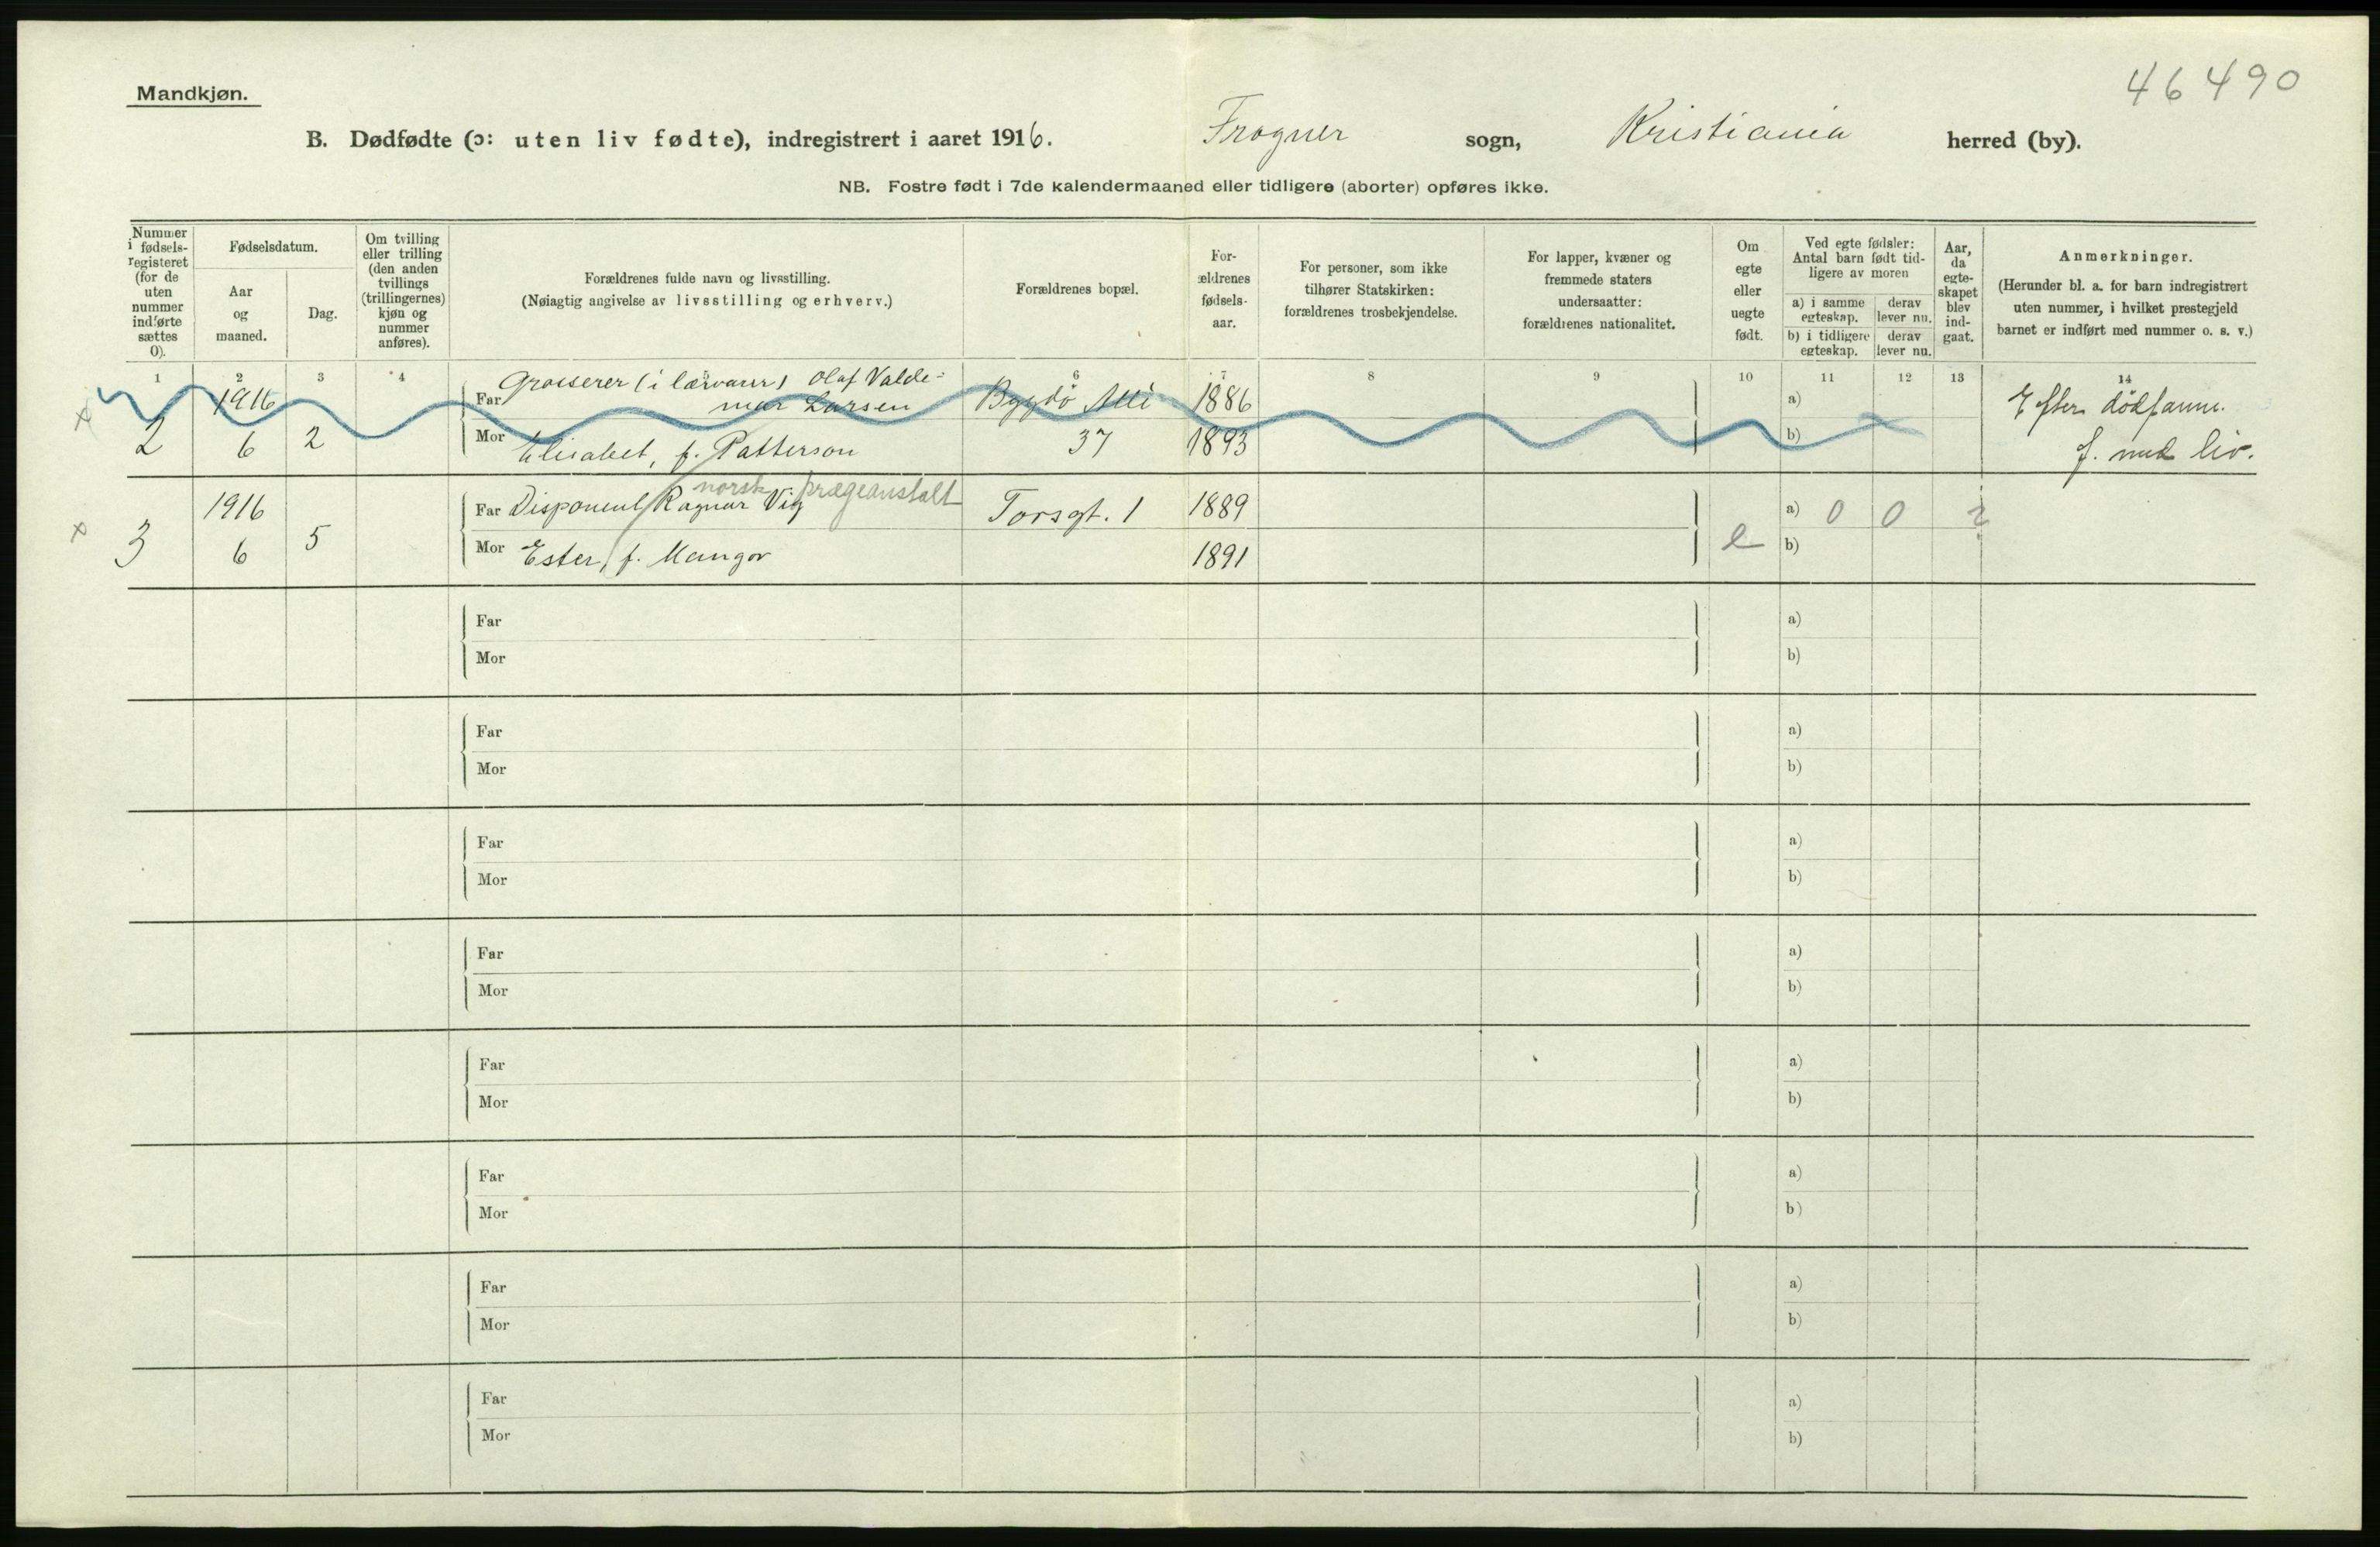 46490
Mandkjøn.
B. Dødfødte (ɔ: uten liv fødte), indregistrert i aaret 1916. Frogner sogn, Kristiania herred (by).
NB. Fostre født i 7de kalendermaaned eller tidligere (aborter) opføres ikke.
Nummer i fødsels-registeret (for de uten nummer indførte sættes 0).
Fødselsdatum.
Aar og maaned.
Dag.
Om tvilling eller trilling (den anden tvillings (trillingernes) kjøn og nummer anføres).
Forældrenes fulde navn og livsstilling.
(Nøiagtig angivelse av livsstilling og erhverv.)
Forældrenes bopæl.
For-ældrenes fødsels-aar.
For personer, som ikke tilhører Statskirken: forældrenes trosbekjendelse.
For lapper, kvæner og fremmede staters undersaatter: forældrenes nationalitet.
Om egte eller uegte født.
Ved egte fødsler: Antal barn født tid-ligere av moren
a) i samme egteskap.
derav lever nu.
b) i tidligere egteskap.
derav lever nu.
Aar, da egte-skapet blev ind-gaat.
Anmerkninger.
(Herunder bl. a. for barn indregistrert uten nummer, i hvilket prestegjeld barnet er indført med nummer o. s. v.)
1 2 3 4 5 6 7 8 9 10 11 12 13 14
x 2 1916 6 2
Far Grosserer (i lærvarer) Olaf Valde-
mar Larsen Bygdö Allé 1886 a) Efter dödfanm.
Mor Elisabet, f. Patterson 37 1893 b) f. med liv.
norsk prægeanstalt
x 3 1916 6 5
Far Disponent Ragnar Vig Torsgt. 1 1889 e a) 0 0 ?
Mor Ester, f. Mangor 1891 b)
Far a)
Mor b)
Far a)
Mor b)
Far a)
Mor b)
Far a)
Mor b)
Far a)
Mor b)
Far a)
Mor b)
Far a)
Mor b)
Far a)
Mor b)